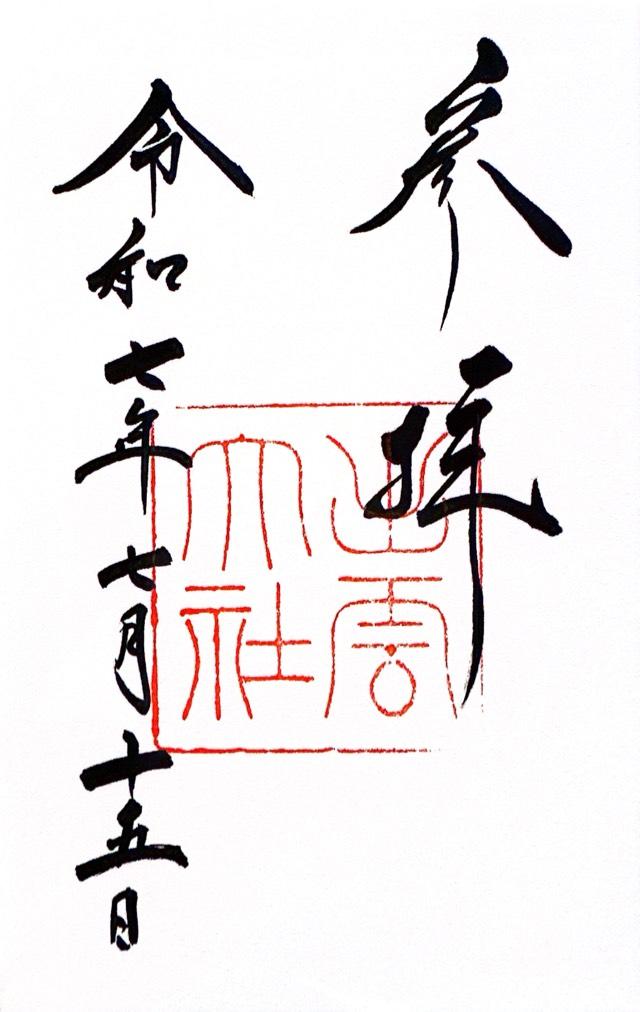 参拝
出雲
大社
令和七年七月十五日